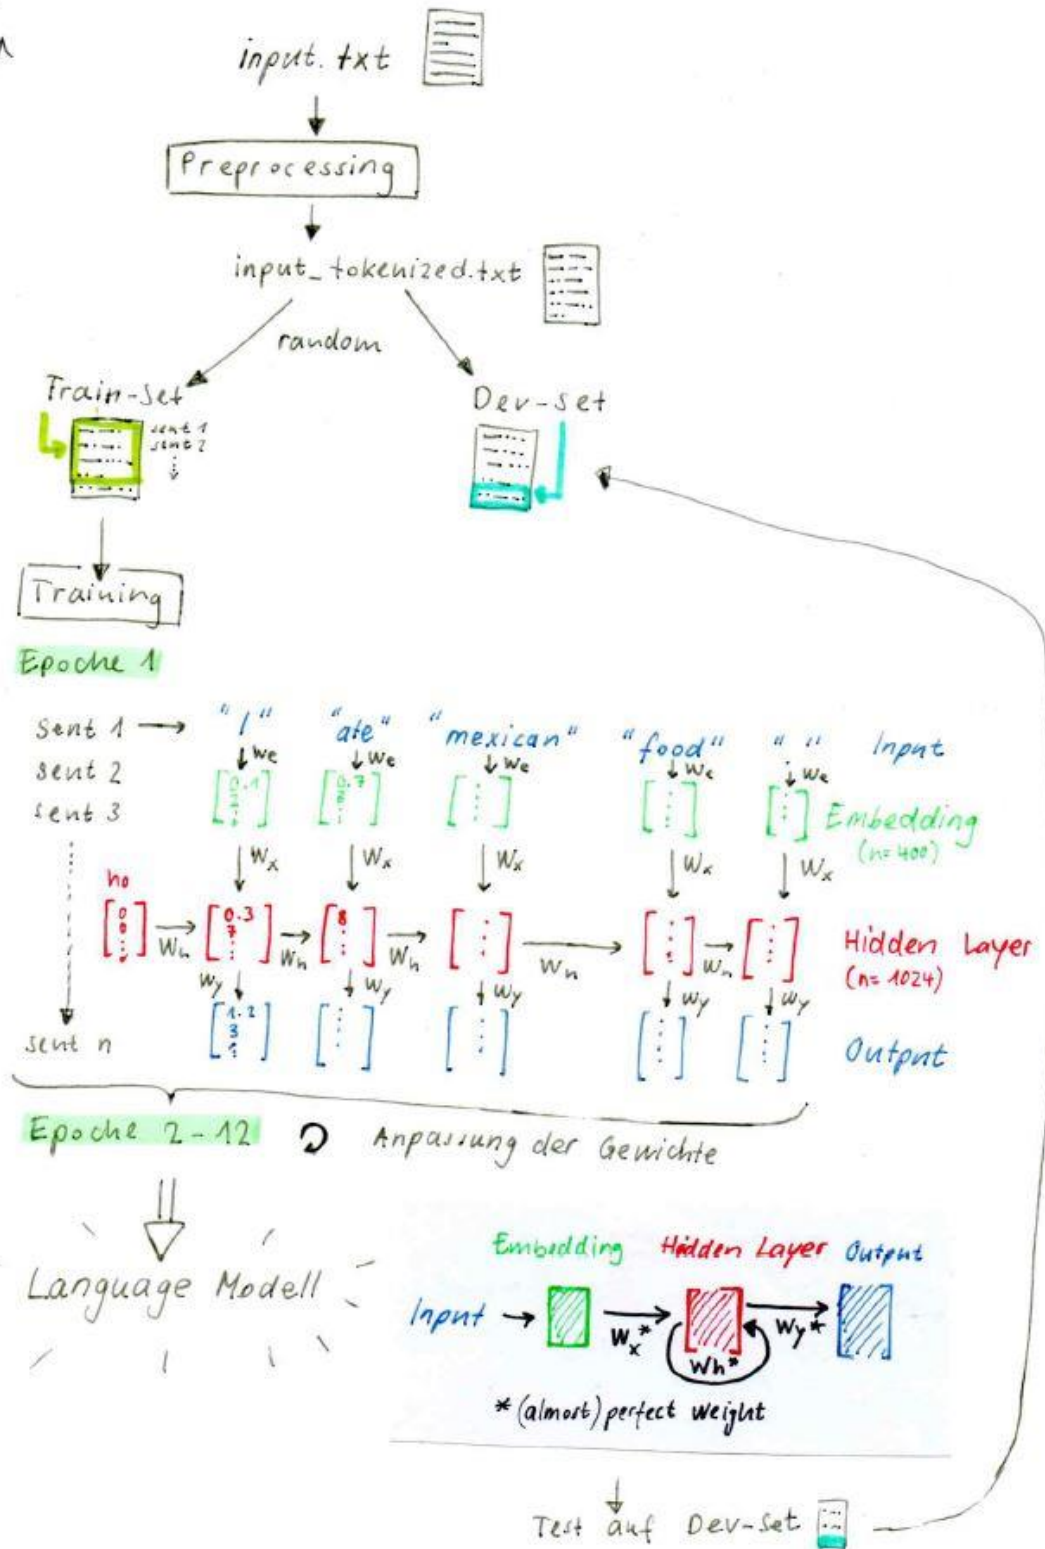 input.txt
Preprocessing
input_tokenized.txt
random
Train-Set
sent 1
sent 2
Dev-set
Training
Epoche 1
Sent 1 "I" "ate" "mexican" "food" " " Input
we we we we we
sent 2
sent 3
[0.1 [0.7 Embedding
(n=400)
Wx Wx Wx Wx Wx
h0
0 0.3 8 Hidden Layer
0 7
Wh Wh Wh Wh Wh (n=1024)
Wy Wy Wy Wy Wy
1.2
3
1
sent n Output
Epoche 2-12 Anpassung der Gewichte
Language Modell
Embedding Hidden Layer Output
Input Wx* Wh* Wy*
*(almost) perfect weight
Test auf Dev-Set